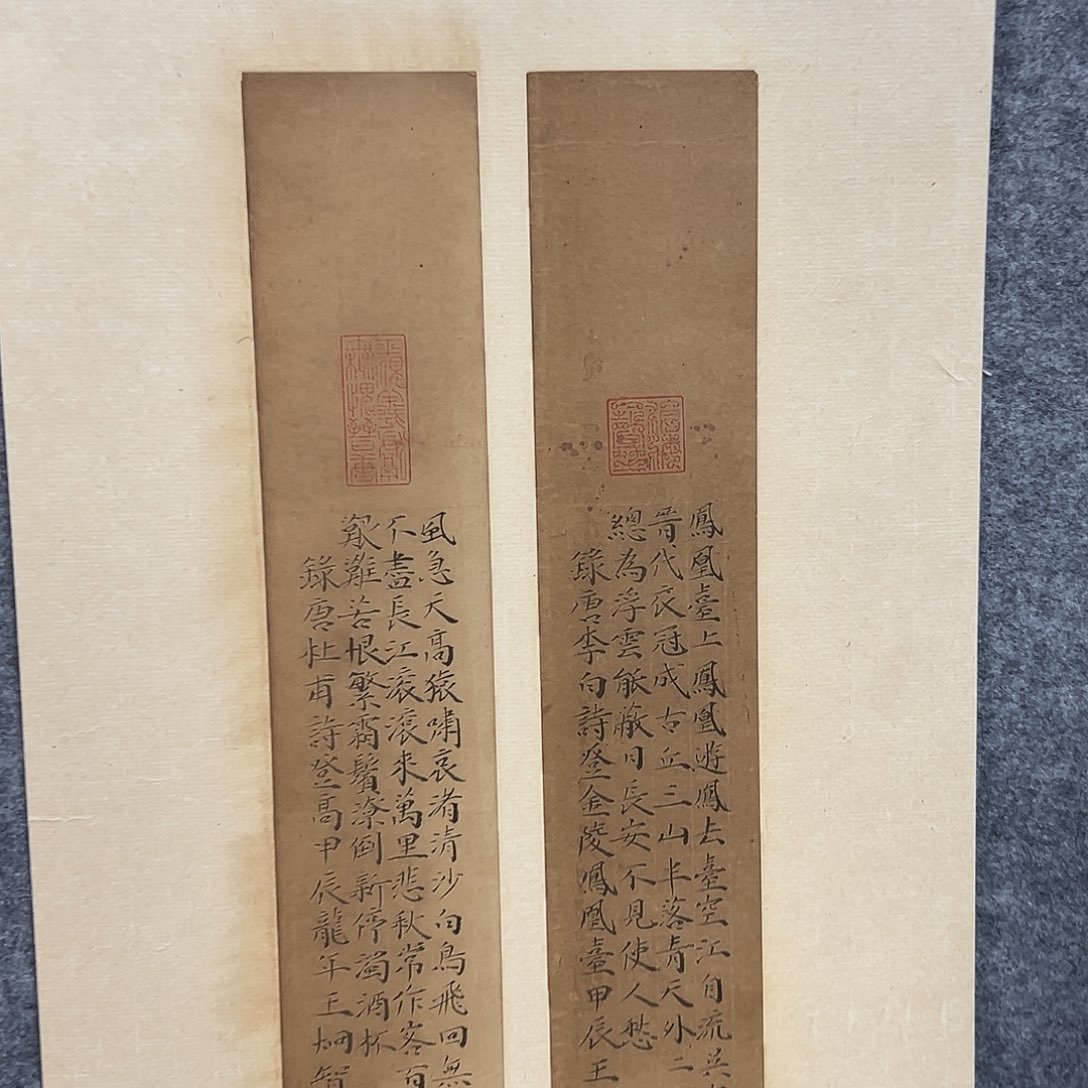 鳳凰臺上鳳凰遊鳳去臺空江自流吳
晉代衣冠成古丘三山半落青天外二
總為浮雲能蔽日長安不見使人愁
錄唐李白詩登金陵鳳凰臺甲辰王
風急天高猿嘯哀渚清沙白鳥飛回無
不盡長江滾滾來萬里悲秋常作客百
艱難苦恨繁霜鬢潦倒新停濁酒杯
錄唐杜甫詩登高甲辰龍年王炯智